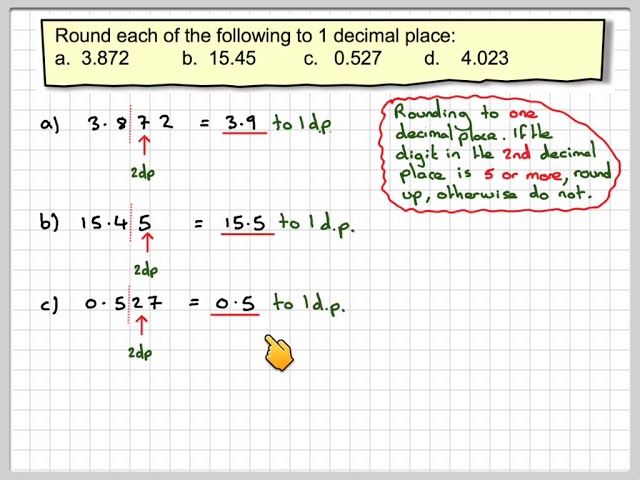 Round each of the following to 1 decimal place:
a. 3.872 b. 15.45 c. 0.527 d. 4.023
a) 3.872 = 3.9 to 1 d.p.
2dp
Rounding to one
decimal place. If the
digit in the 2nd decimal
place is 5 or more, round
up, otherwise do not.
b) 15.45 = 15.5 to 1 d.p.
2dp
c) 0.527 = 0.5 to 1 d.p.
2dp